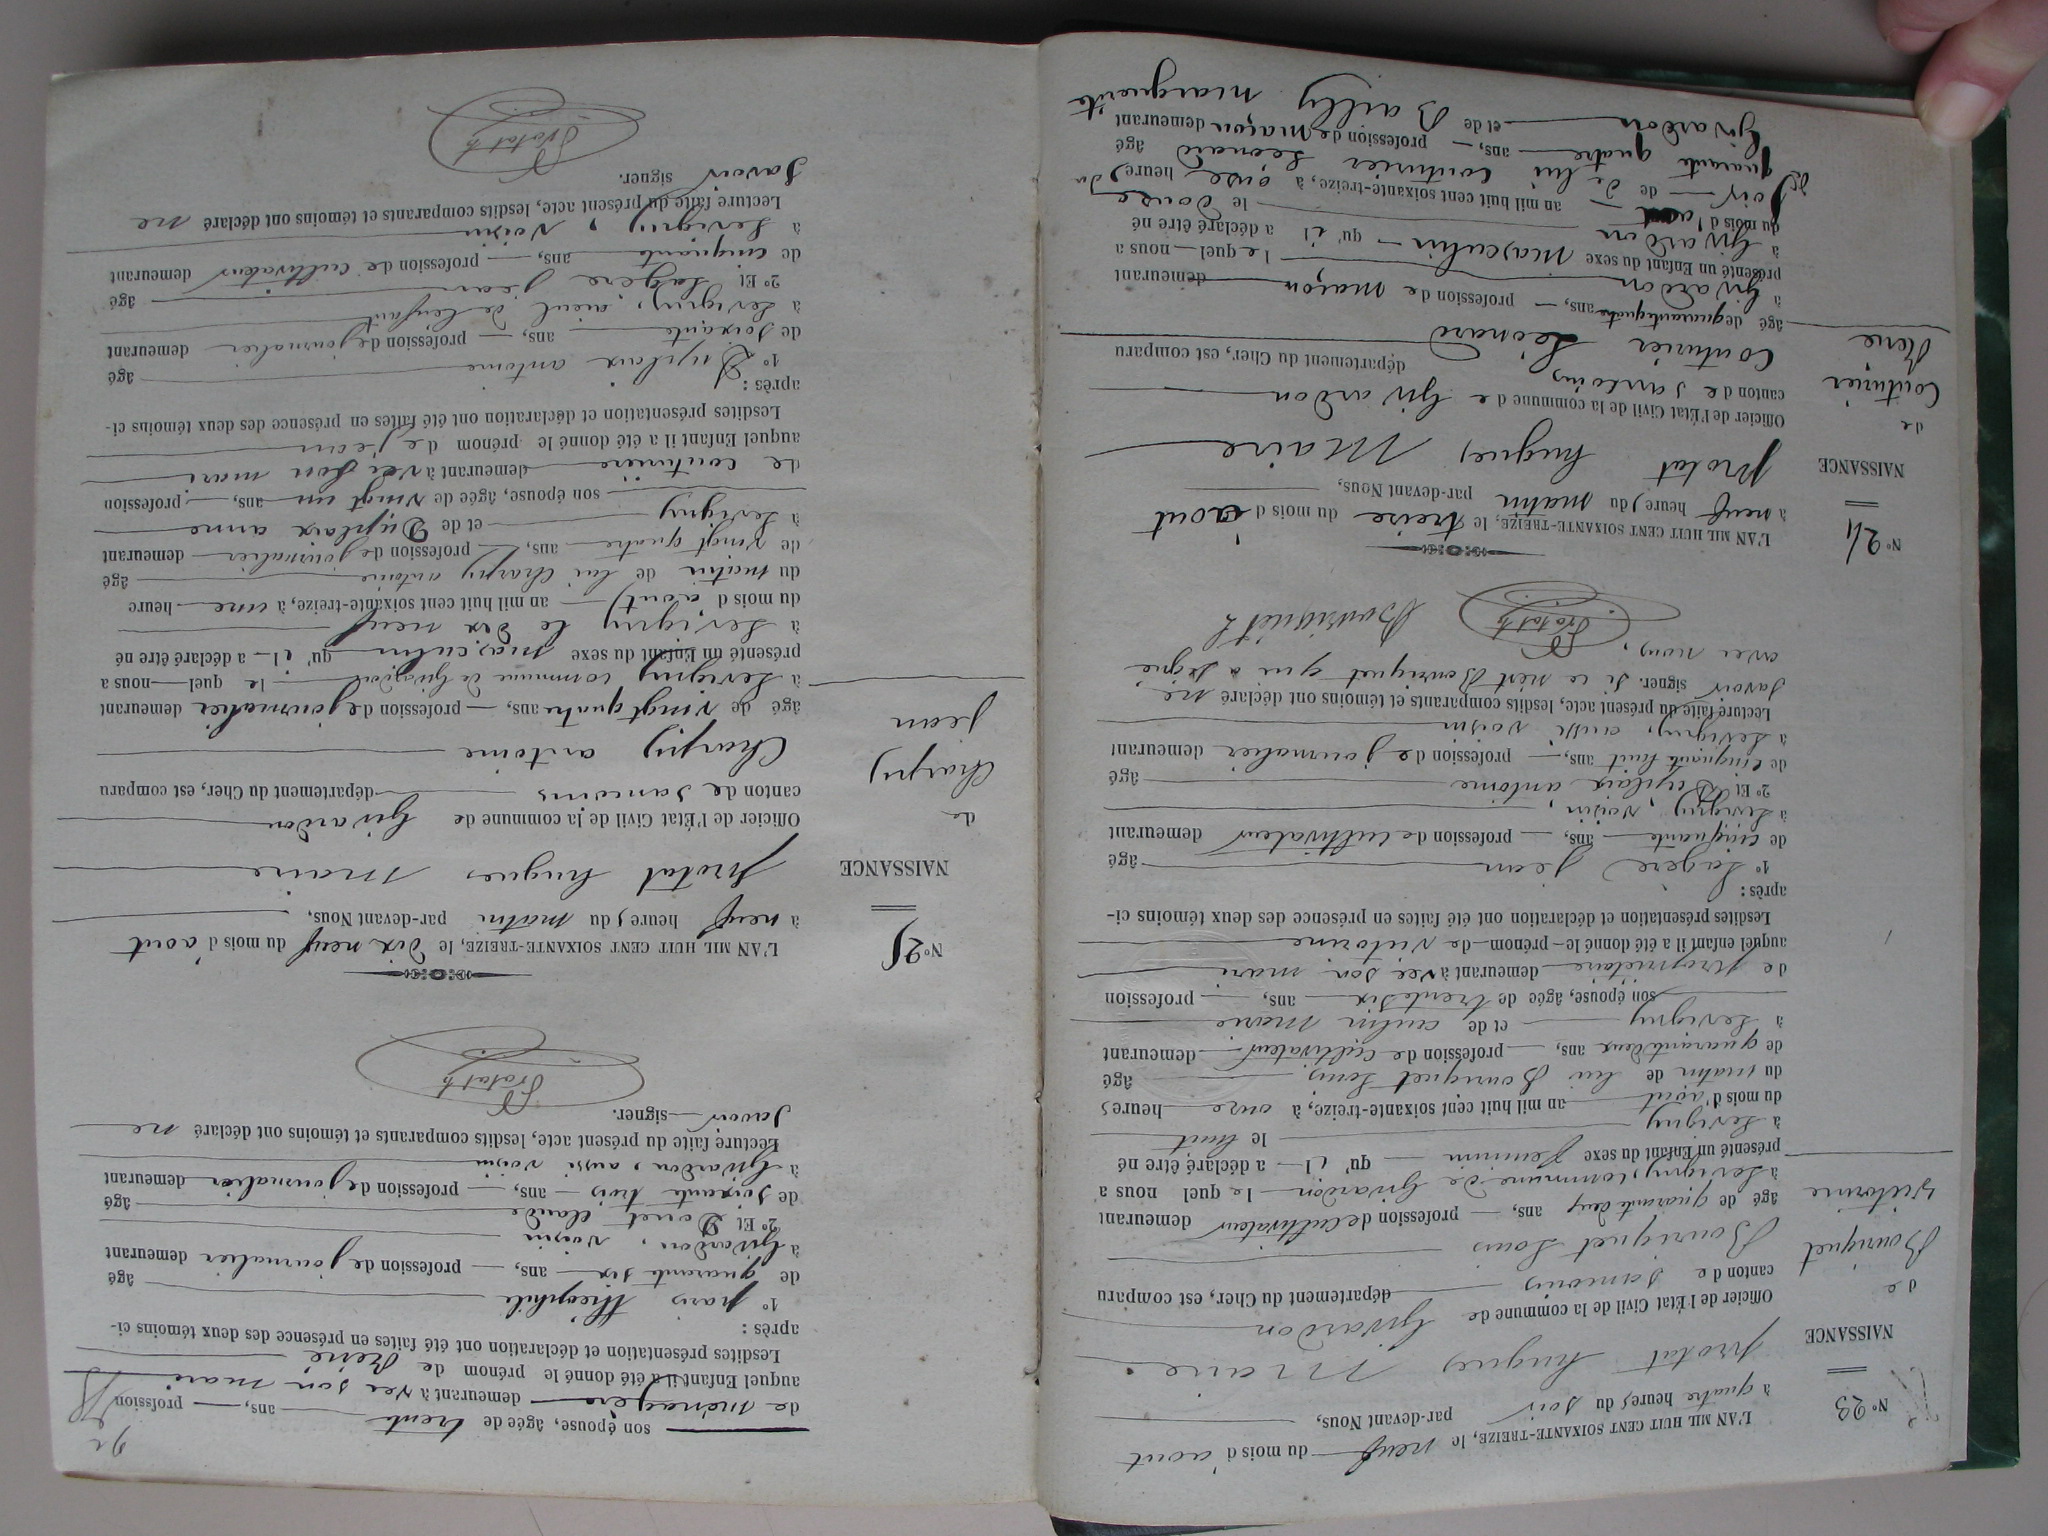 N° 23
NAISSANCE
de
Bouriquet
Victorine
L'AN MIL HUIT CENT SOIXANTE-TREIZE, le neuf du mois d'aout
à quatre heures du soir par-devant Nous,
protat hugues Maire
Officier de l'État Civil de la commune de Givardon
canton de Sancoins département du Cher, est comparu
Bouriquet Louis
âgé de quarante deux ans, profession de cultivateur demeurant
à Levigny, commune de Givardon lequel nous a
présenté un Enfant du sexe feminin qu'il a déclaré être né
à Levigny le huit
du mois d'aout an mil huit cent soixante-treize, à onze heures
du matin de lui Bouriquet Louis âgé
de quarante deux ans, profession de cultivateur demeurant
à Levigny et de aubin marie
son épouse, âgée de trente six ans, profession
de propriétaire demeurant avec son mari
auquel enfant il a été donné le prénom de victorine
Lesdites présentation et déclaration ont été faites en présence des deux témoins ci-
après :
1° Lagère jean âgé
de cinquante ans, profession de cultivateur demeurant
à Levigny, voisin,
2° Et Duplaix antoine âgé
de cinquante huit ans, profession de journalier demeurant
à Levigny, aussi voisin
Lecture faite du présent acte, lesdits comparants et témoins ont déclaré ne
savoir signer. si ce n'est Bouriquet qui a signé
avec nous.
Protat h Bouriquet L
N° 24
NAISSANCE
de
Couturier
René
L'AN MIL HUIT CENT SOIXANTE-TREIZE, le treize du mois d'aout
à neuf heures du matin par-devant Nous,
protat hugues Maire
Officier de l'État Civil de la commune de Givardon
canton de Sancoins département du Cher, est comparu
Couturier Léonard
âgé de quarante quatre ans, profession de maçon demeurant
à Givardon lequel nous a
présenté un Enfant du sexe masculin qu'il a déclaré être né
à Givardon le douze
du mois d'aout an mil huit cent soixante-treize, à onse heures du
soir de lui couturier Léonard âgé
de quarante quatre ans, profession de maçon demeurant
Givardon et de Bailly marguerite
son épouse, âgée de trente ans, profession
de ménagère demeurant avec son mari
auquel Enfant il a été donné le prénom de René
Lesdites présentation et déclaration ont été faites en présence des deux témoins ci-
après :
1° paris théophile âgé
de quarante six ans, profession de journalier demeurant
à Givardon, voisin
2° Et Doret claude âgé
de soixante trois ans, profession de journalier demeurant
à Givardon, aussi voisin
Lecture faite du présent acte, lesdits comparants et témoins ont déclaré ne
savoir signer.
Protat h
N° 25
NAISSANCE
de
Chargy
jean
L'AN MIL HUIT CENT SOIXANTE-TREIZE, le dix neuf du mois d'aout
à neuf heures du matin par-devant Nous,
protat hugues maire
Officier de l'État Civil de la commune de Givardon
canton de Sancoins département du Cher, est comparu
Chargy antoine
âgé de vingt quatre ans, profession de journalier demeurant
à Levigny commune de Givardon lequel nous a
présenté un Enfant du sexe masculin qu'il a déclaré être né
à Levigny le dix neuf
du mois d'aout an mil huit cent soixante-treize, à une heure
du matin de lui Chargy antoine âgé
de vingt quatre ans, profession de journalier demeurant
à Levigny et de Duplaix anne
son épouse, âgée de vingt un ans, profession
de couturière demeurant avec son mari
auquel Enfant il a été donné le prénom de jean
Lesdites présentation et déclaration ont été faites en présence des deux témoins ci-
après :
1° Duplaix antoine âgé
de soixante ans, profession de journalier demeurant
à Levigny, aieul de l'enfant
2° Et Lagère jean âgé
de cinquante ans, profession de cultivateur demeurant
à Levigny, voisin
Lecture faite du présent acte, lesdits comparants et témoins ont déclaré ne
savoir signer.
Protat h